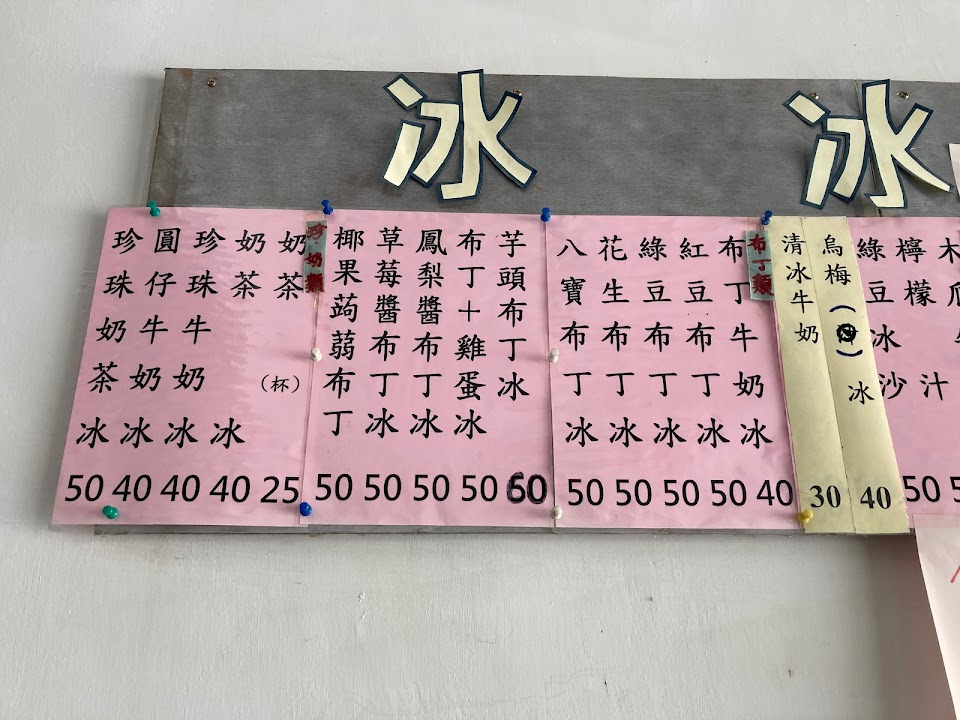 冰
冰
木
檸檬汁
綠豆冰沙 50
烏梅( )冰 40
清冰牛奶 30
布丁類
布丁牛奶冰 40
紅豆布丁冰 50
綠豆布丁冰 50
花生布丁冰 50
八寶布丁冰 50
芋頭布丁冰 60
布丁+雞蛋冰 50
鳳梨醬布丁冰 50
草莓醬布丁冰 50
椰果蒟蒻布丁 50
珍奶類
奶茶(杯) 25
奶茶冰 40
珍珠牛奶冰 40
圓仔牛奶冰 40
珍珠奶茶冰 50